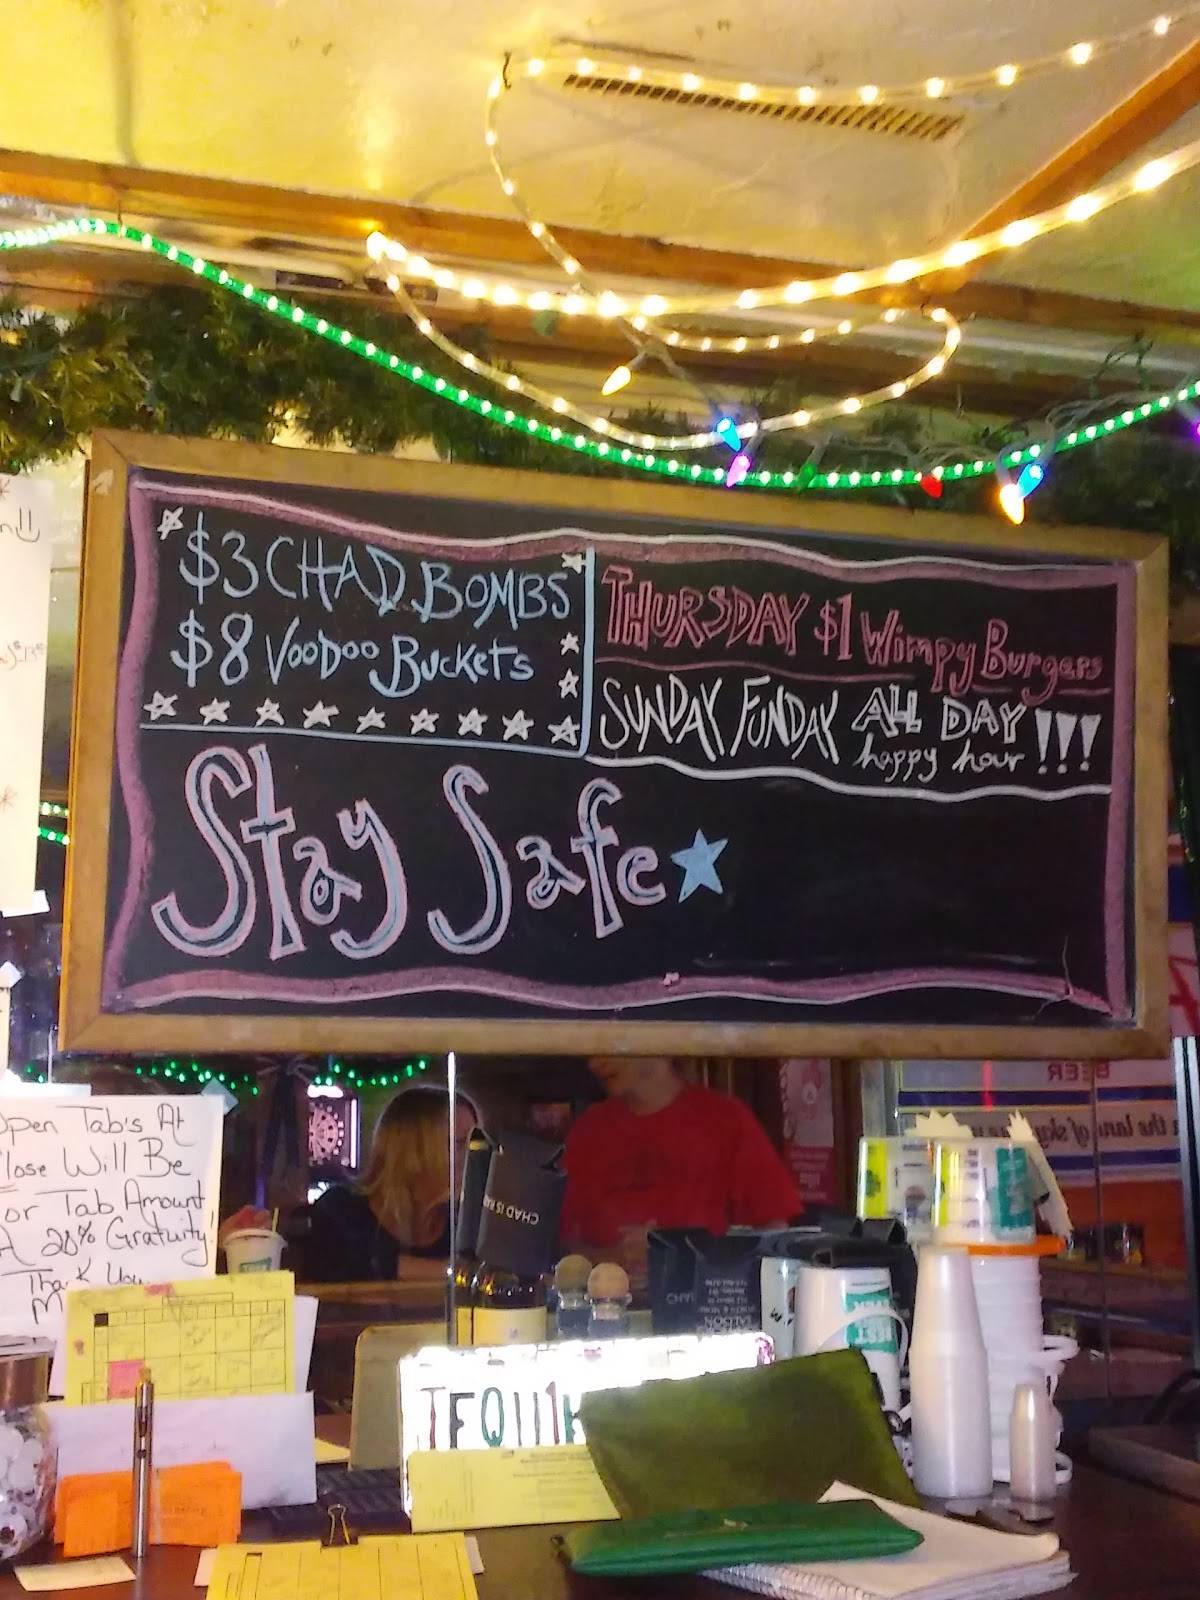 $3 CHAD BOMBS
$8 VOODOO BUCKETS
THURSDAY $1 Wimpy Burgers
SUNDAY FUNDAY ALL DAY
happy hour !!!
Stay Safe
Open Tab's At
Close Will Be
For Tab Amount
A 20% Gratuity!
Thank You
BEER
the land of sky
CHAD IS RAD
SALOON
TEQUI